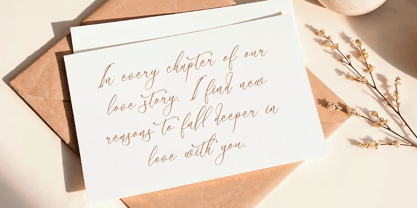 In every chapter of our
love story, I find new
reasons to fall deeper in
love with you.